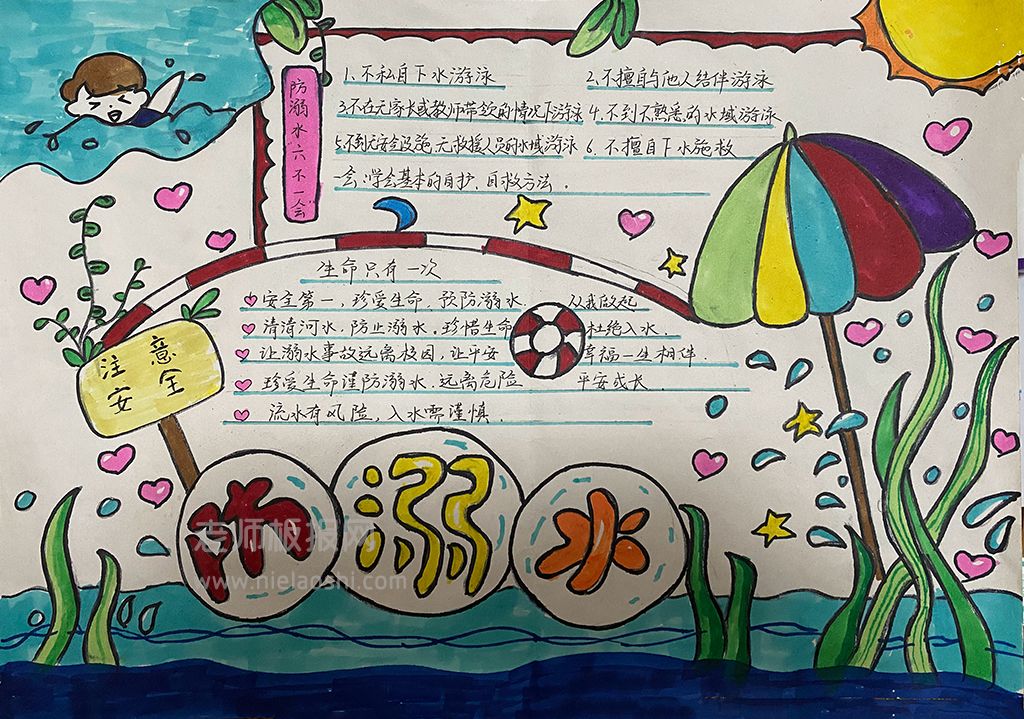 防溺水六不一会
1、不私自下水游泳
2、不擅自与他人结伴游泳
3、不在无家长或教师带领的情况下游泳
4、不到不熟悉的水域游泳
5、不到无安全设施、无救援人员的水域游泳
6、不擅自下水施救
一会:学会基本的自护、自救方法.
生命只有一次
安全第一,珍爱生命,预防溺水. 从我做起
清清河水,防止溺水,珍惜生命 杜绝入水.
让溺水事故远离校园,让平安 幸福一生相伴.
珍爱生命谨防溺水.远离危险 平安成长.
流水有风险,入水需谨慎.
注意
安全
防溺水
老师板报网
www.nielaoshi.com